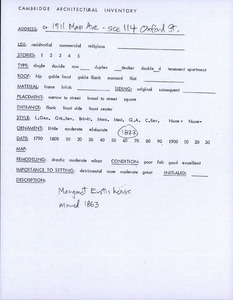 CAMBRIDGE ARCHITECTURAL INVENTORY
ADDRESS: 1911 Mass Ave - see 114 Oxford St.
USE: residential commercial religious
STORIES: 1 2 3 4 5
TYPE: single double row duplex decker double_d tenement apartment
ROOF: hip gable front gable flank mansard flat
MATERIAL: frame brick SIDING: original subsequent
PLACEMENT: narrow to street broad to street square
ENTRANCE: flank front side front center
STYLE: L.Geo, Grk.Rev, Ital, Mans, Med, Q.A., C.Rev, None + None-
ORNAMENT: little moderate elaborate
1863
DATE: 1790 1800 10 20 30 40 50 60 70 80 90 1900 10 20 30
MAP:
REMODELING: drastic moderate minor CONDITION: poor fair good excellent
IMPORTANCE TO SETTING: detrimental none moderate great INITIALED:
DESCRIPTION:
Margaret Eustis house
moved 1863